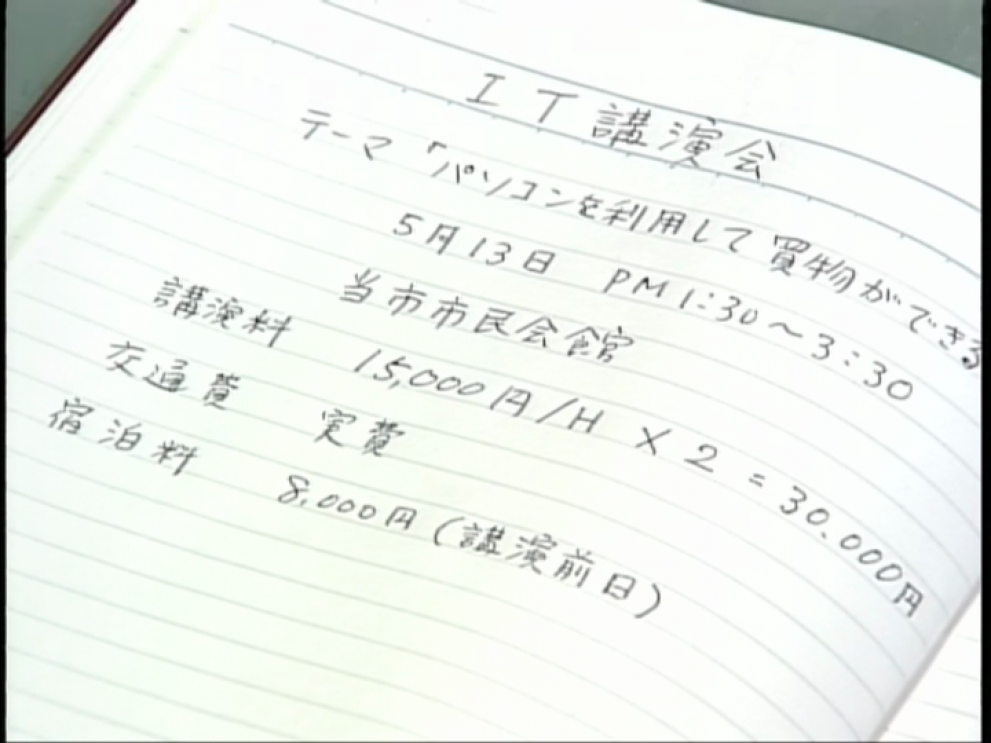 IT講演会
テーマ「パソコンを利用して買物ができる
5月13日 PM1:30〜3:30
当市市民会館
講演料 15,000円/H × 2 = 30.000円
交通費 実費
宿泊料 8.000円(講演前日)